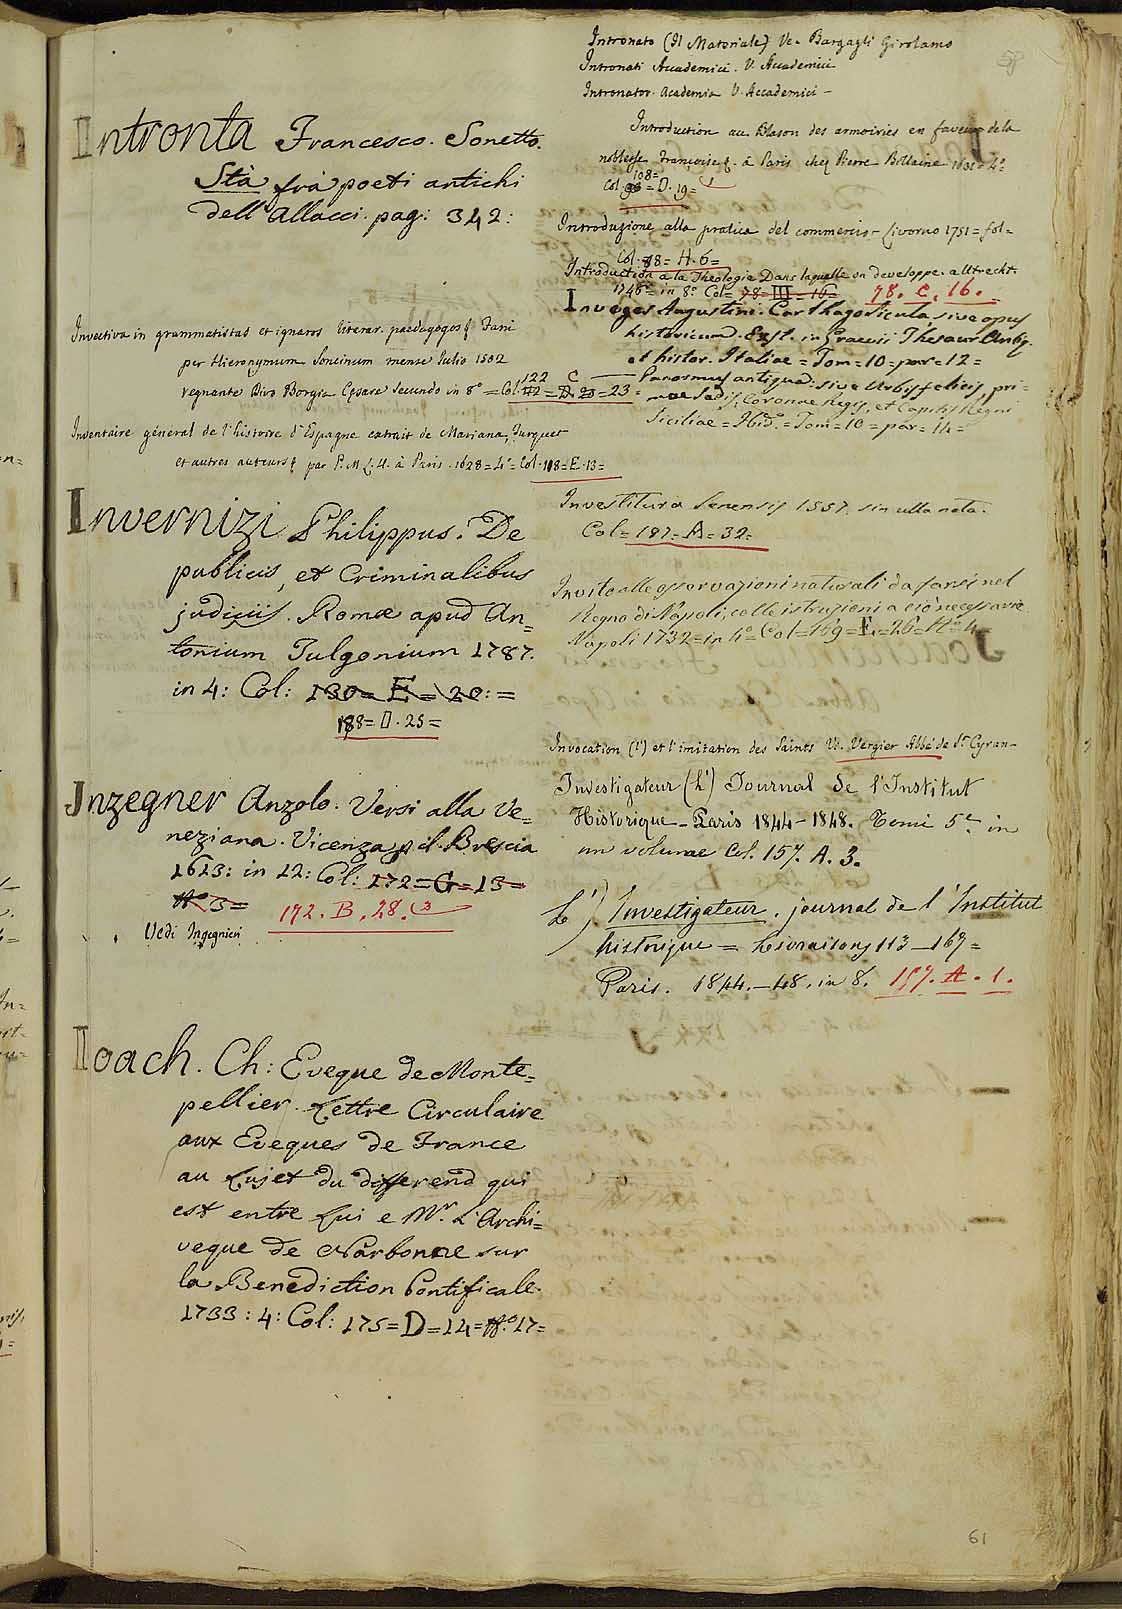 Intronta Francesco. Sonetto.
Stà frà poeti antichi
dell'Allacci. pag: 342:
Invectiva in grammatistas et ignaros literar. paedagogos Fani
per Hieronymum Soncinum mense Iulio 1502
regnante Divo Borgia Cesare secundo in 8° = Col. 122 C 23
Inventaire géneral de l'histoire d'Espagne extrait de Mariana, Turquet
et autres auteurs par P. M. L. H. à Paris. 1628 = 4° = Col. 108 = E. 13 =
Invernizi Philippus. De
publicis, et Criminalibus
judiciis. Romæ apud An=
tonium Fulgonium 1787.
in 4: Col: 130 = E = 20: =
188 = D. 25 =
Inzegner Anzolo. Versi alla Ve=
neziana. Vicenza p il Brescia
1613: in 12: Col: 172 = G = 13 =
N° 3 = 172. B. 28. (3
Vedi Ingegneri
Ioach. Ch: Eveque de Monte=
pellier. Lettre Circulaire
aux Eveques de France
au sujet du differend qui
est entre Lui e Mr. L'Archi=
veque de Narbonne sur
la Benediction Pontificale.
1733: 4: Col: 175 = D = 14 = N.° 17 =
58
Intronato (Il Materiale) Ve. Bargagli Girolamo
Intronati Accademici. V. Accademici
Intronator. Academia V. Accademici -
Introduction au Blason des armoiries en faveur de la
noblesse Françoise. à Paris chez Pierre Billaine 1631 = 4°
Col. 108 = D. 19 =
Introduzione alla pratica del commercio - Livorno 1751 = fol =
Col. 88 = H. 6 =
Introduction a la Theologie Dans laquelle on developpe. a Utrecht.
1746 = in 8° Col = 78 = III = 16 = 78. C. 16.
Inveges Augustini. Carthago Sicula sive opus
historicum. Exst. in Graevii Thesaur Antiq.
et histor. Italiae = Tom = 10 = par = 12 =
Panormus antiqua: sive Urbis felicis, pri=
mae Sedis, Coronae Regis, et Capitis Regni
Siciliae = Ibid. = Tom = 10 = par = 14 =
Investitura Senensis 1557. sin ulla nota.
Col = 187 = A = 32 =
Invito alle osservazioni naturali da farsi nel
Regno di Napoli, colle istruzioni a ciò necessarie
Napoli 1732 = in 4° = Col = 169 = E. = 26 = N° 4 =
Invocation (l') et l'imitation des Saints Ve. Vergier Abbé de St. Cyran -
Investigateur (L') Journal de l'Institut
Historique - Paris 1844 - 1848. Tomi 5. in
un volume Col. 157. A. 3.
L') Investigateur. journal de l'Institut
historique = Livraisons 113 - 169 =
Paris. 1844. - 48. in 8. 157. A. 1.
61